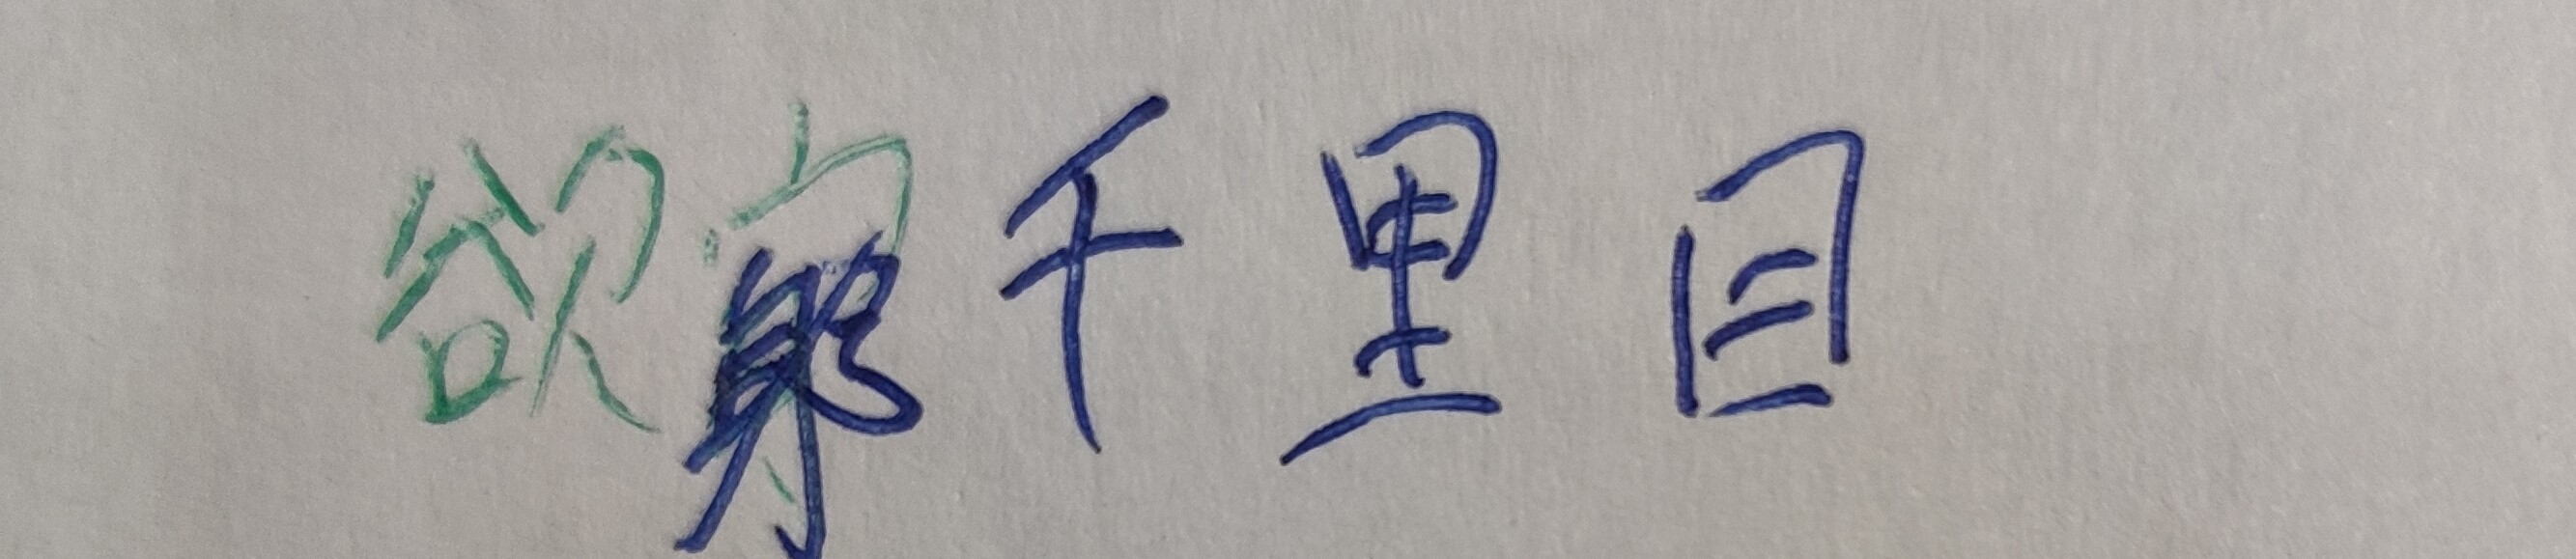 欲窮千里目